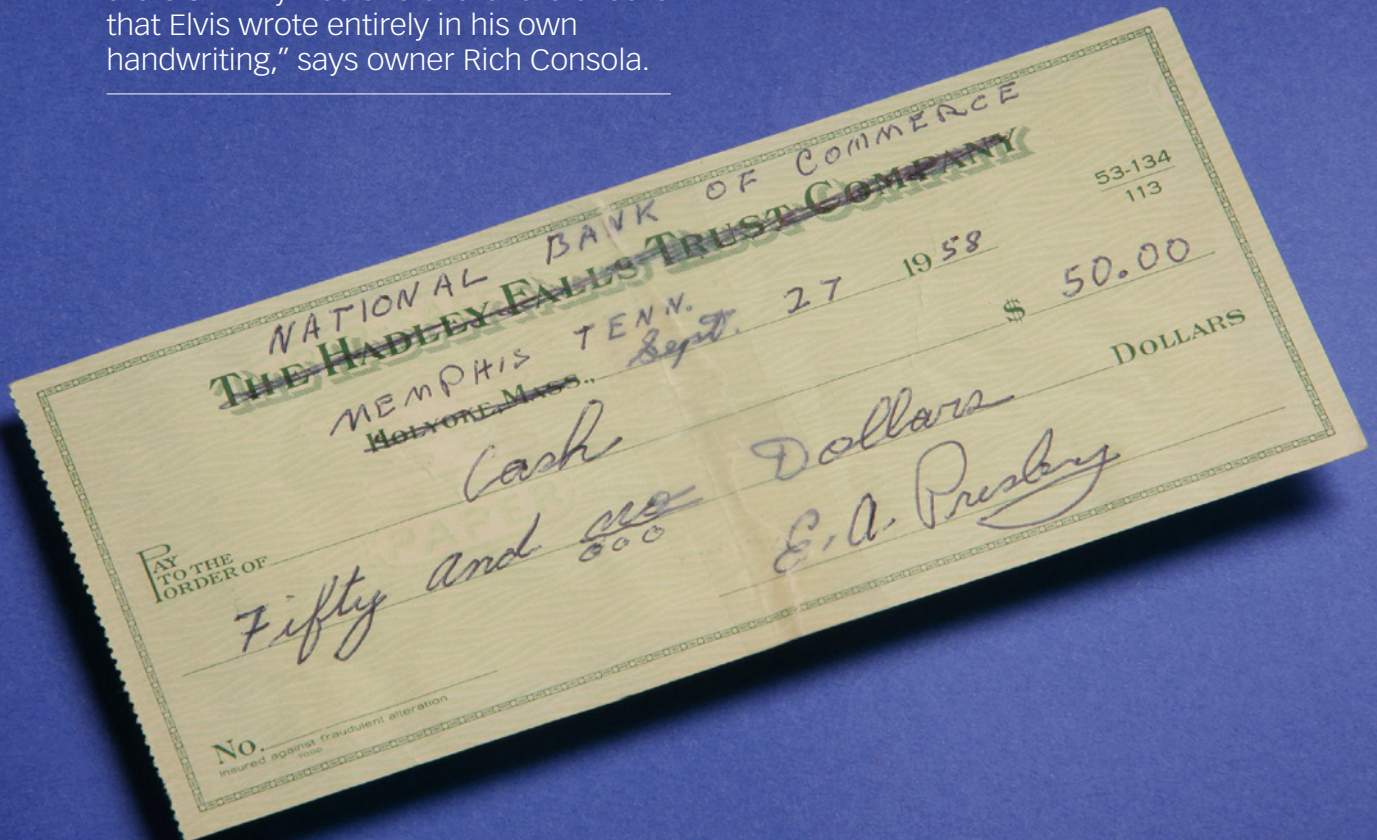 that Elvis wrote entirely in his own
handwriting,” says owner Rich Consola.
NATIONAL BANK OF COMMERCE
THE HADLEY FALLS TRUST COMPANY
53-134
113
MEMPHIS TENN.
HOLYOKE, MASS., Sept. 27 1958
$ 50.00
PAY TO THE ORDER OF Cash
Fifty and no Dollars DOLLARS
000
E. A. Presley
No.
Insured against fraudulent alteration